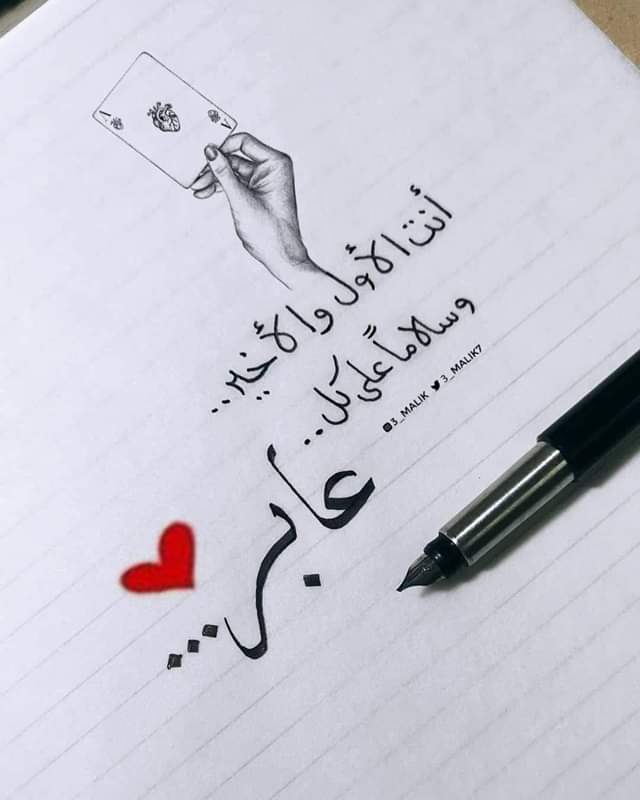 A
A
أنت الأول والأخير..
وسلاماً على كل..
3_MALIK 3_MALIK7
عابر...